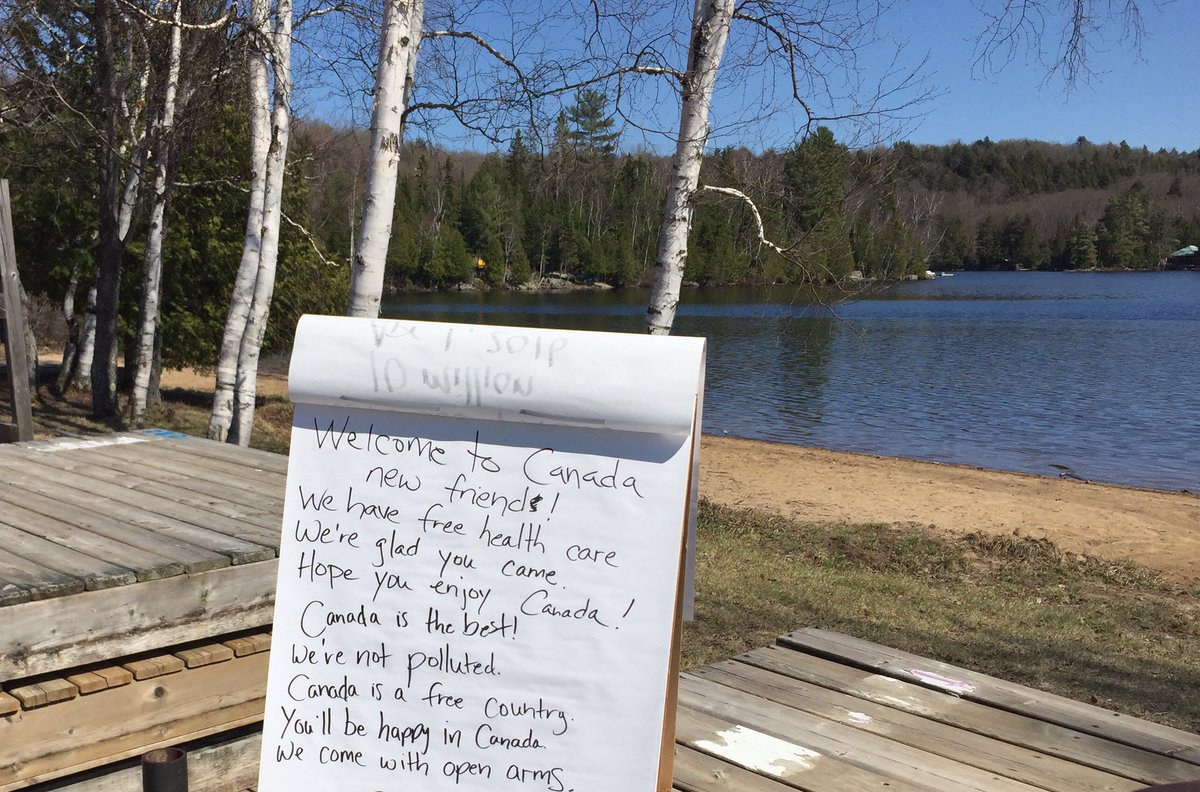 10 million
Welcome to Canada
new friends!
We have free health care
We're glad you came.
Hope you enjoy Canada!
Canada is the best!
We're not polluted.
Canada is a free country.
You'll be happy in Canada.
We come with open arms.